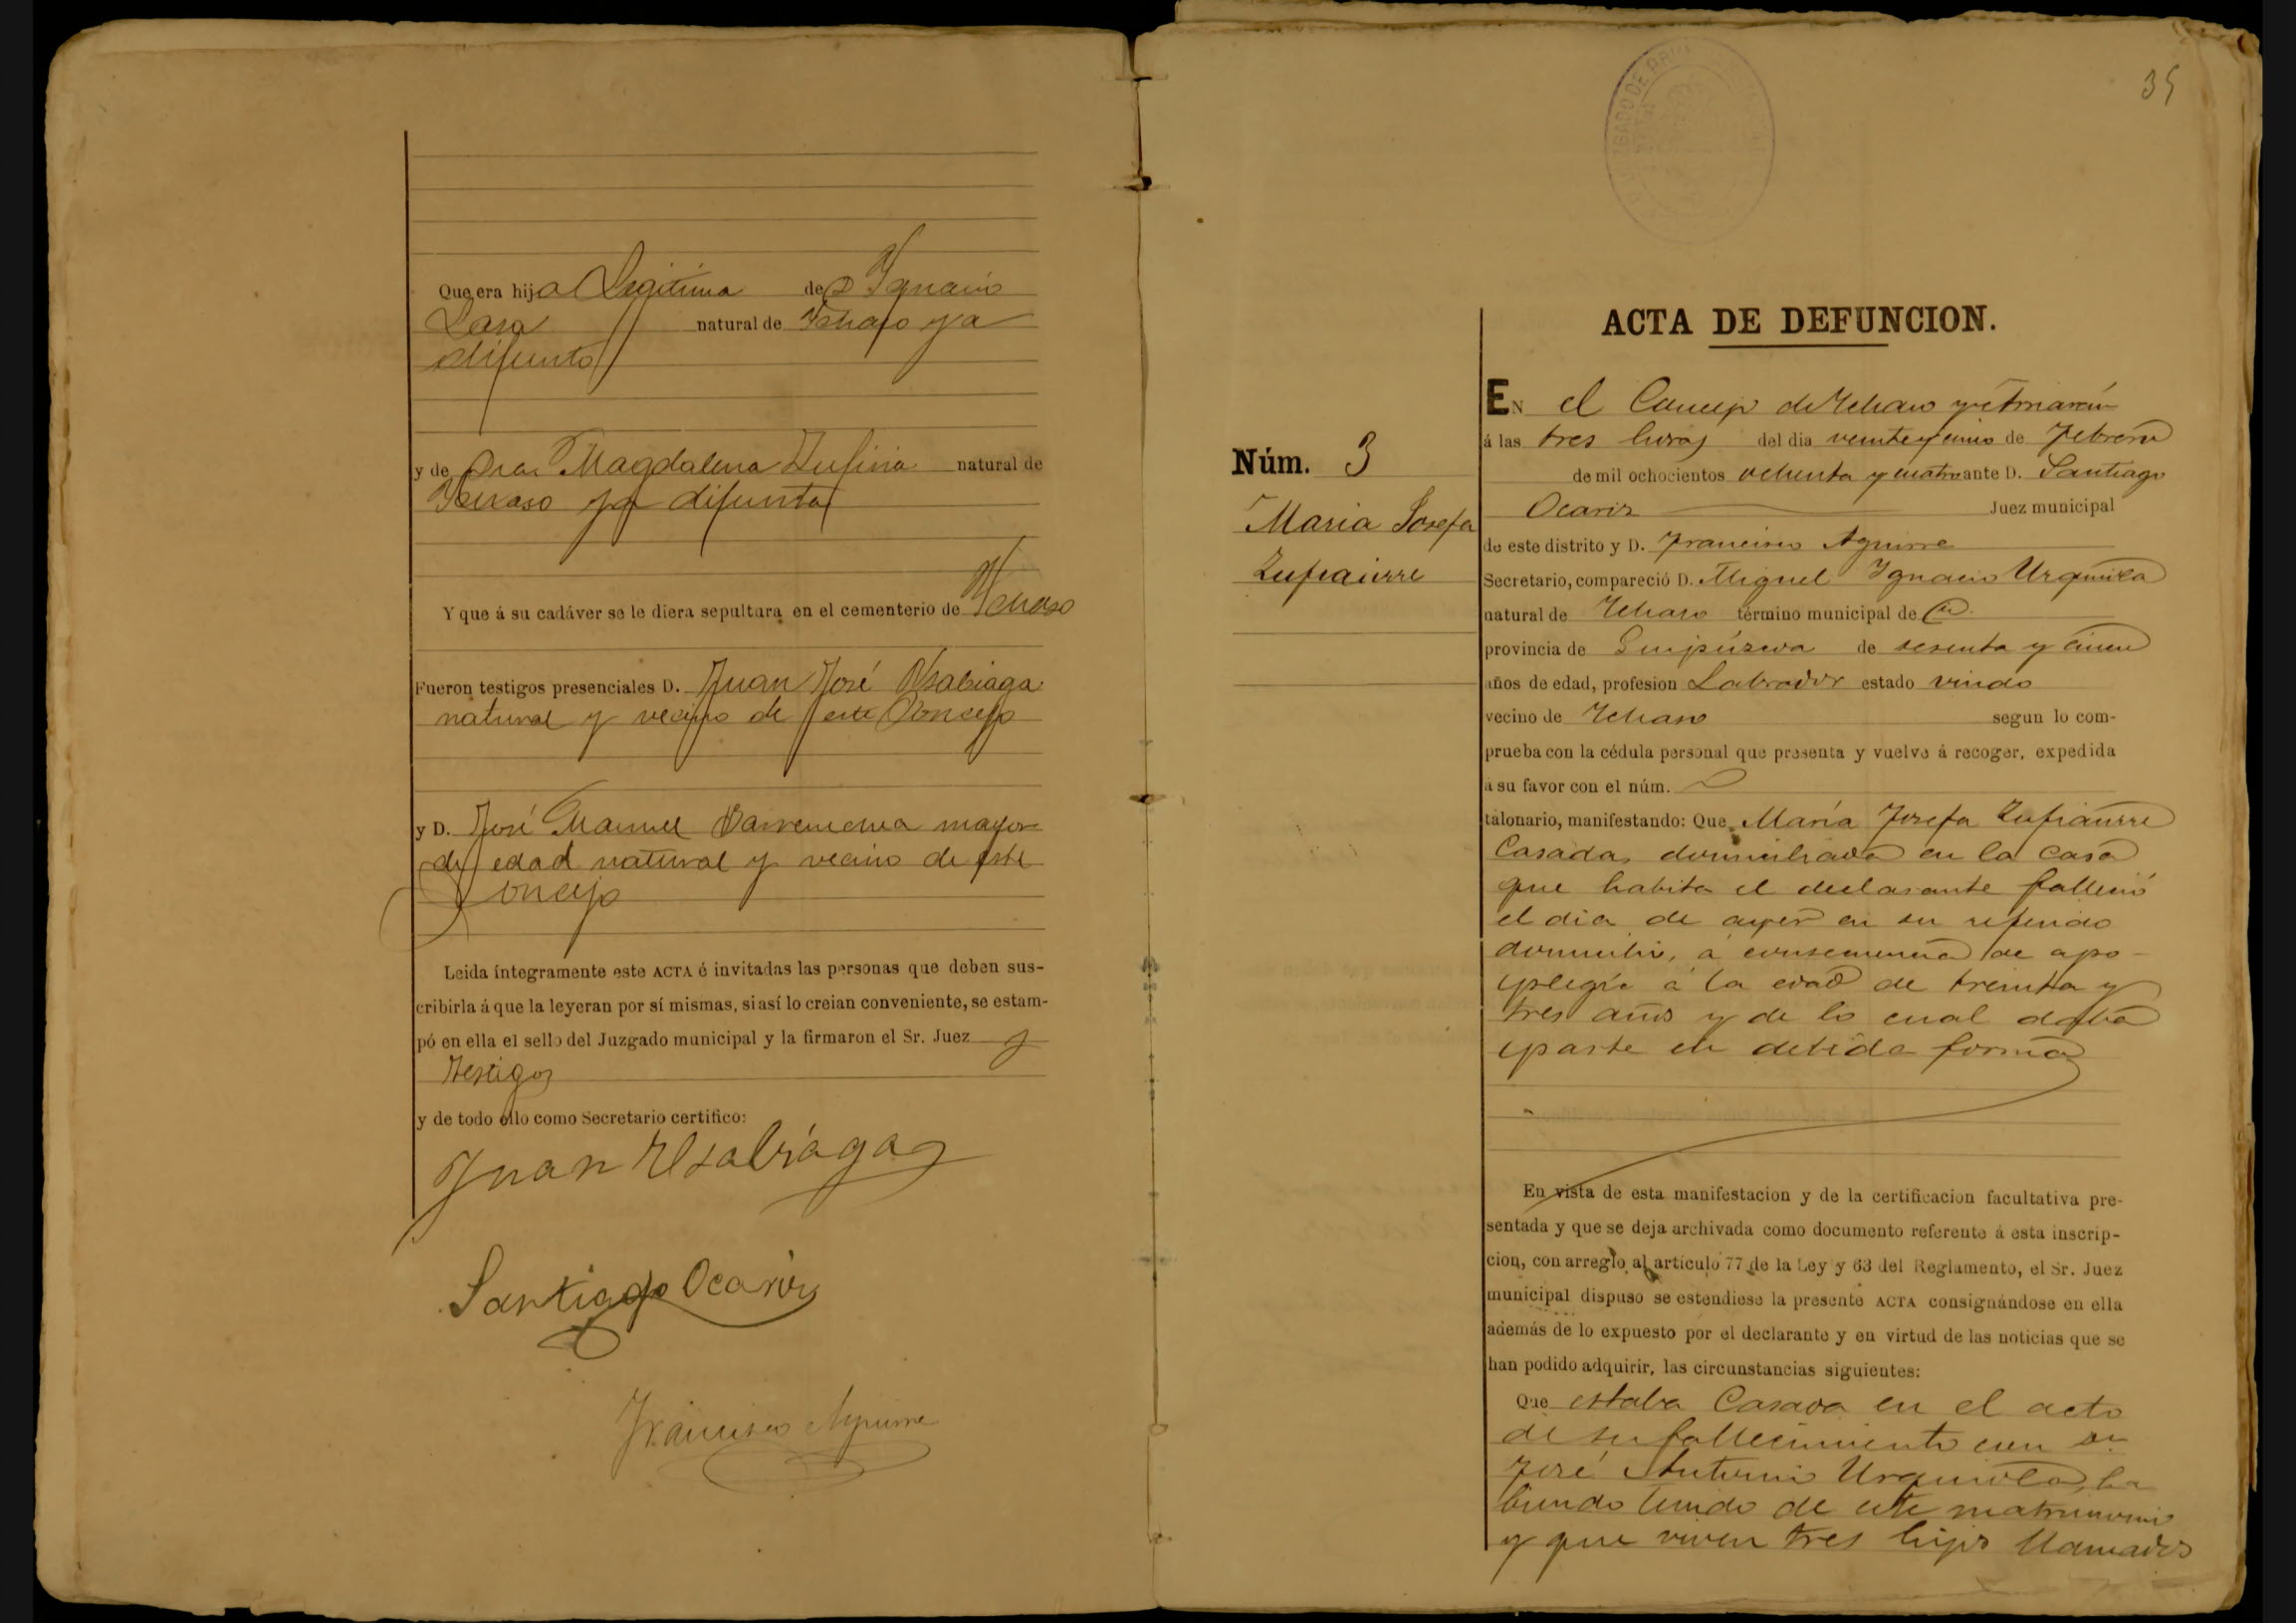 Que era hija Legitima de D Ygnacio
Lasa natural de Ychaso ya
difunto
y de Dña. Magdalena Zufiria natural de
Ychaso ya difunta
Y que á su cadáver se le diera sepultura en el cementerio de Ychaso
Fueron testigos presenciales D. Juan José Usabiaga
natural y vecino de este Concejo
y D. José Manuel Barrenechea mayor
de edad natural y vecino de este
Concejo
Leida íntegramente este ACTA é invitadas las personas que deben sus-
cribirla á que la leyeran por sí mismas, si así lo creian conveniente, se estam-
pó en ella el sello del Juzgado municipal y la firmaron el Sr. Juez y
testigos
y de todo ello como Secretario certifico:
Juan Usabiaga
Santiago Ocariz
Francisco Aguirre
35
ACTA DE DEFUNCION.
Núm. 3
Maria Josefa
Zufiaurre
EN el Concejo de Ychaso y
á las tres horas del dia veinte y cinco de Febrero
de mil ochocientos ochenta y cuatro ante D. Santiago
Ocariz Juez municipal
de este distrito y D. Francisco Aguirre
Secretario, compareció D. Miguel Ygnacio Urquiola
natural de Ychaso término municipal de id.
provincia de Guipúzcoa de sesenta y cinco
años de edad, profesion Labrador estado viudo
vecino de Ychaso segun lo com-
prueba con la cédula personal que presenta y vuelve á recoger, expedida
á su favor con el núm.
talonario, manifestando: Que María Josefa Zufiaurre
Casada, domiciliada en la casa
que habita el declarante falleció
el dia de ayer en su referido
domicilio, á consecuencia de apo-
plegía á la edad de treinta y
tres años y de lo cual daba
parte en debida forma
En vista de esta manifestacion y de la certificacion facultativa pre-
sentada y que se deja archivada como documento referente á esta inscrip-
cion, con arreglo al artículo 77 de la Ley y 63 del Reglamento, el Sr. Juez
municipal dispuso se estendiese la presente ACTA consignándose en ella
además de lo expuesto por el declarante y en virtud de las noticias que se
han podido adquirir, las circunstancias siguientes:
Que estaba Casada en el acto
de su fallecimiento con Dn
José Antonio Urquiola, ha
biendo tenido de este matrimonio
y que viven tres hijos llamados